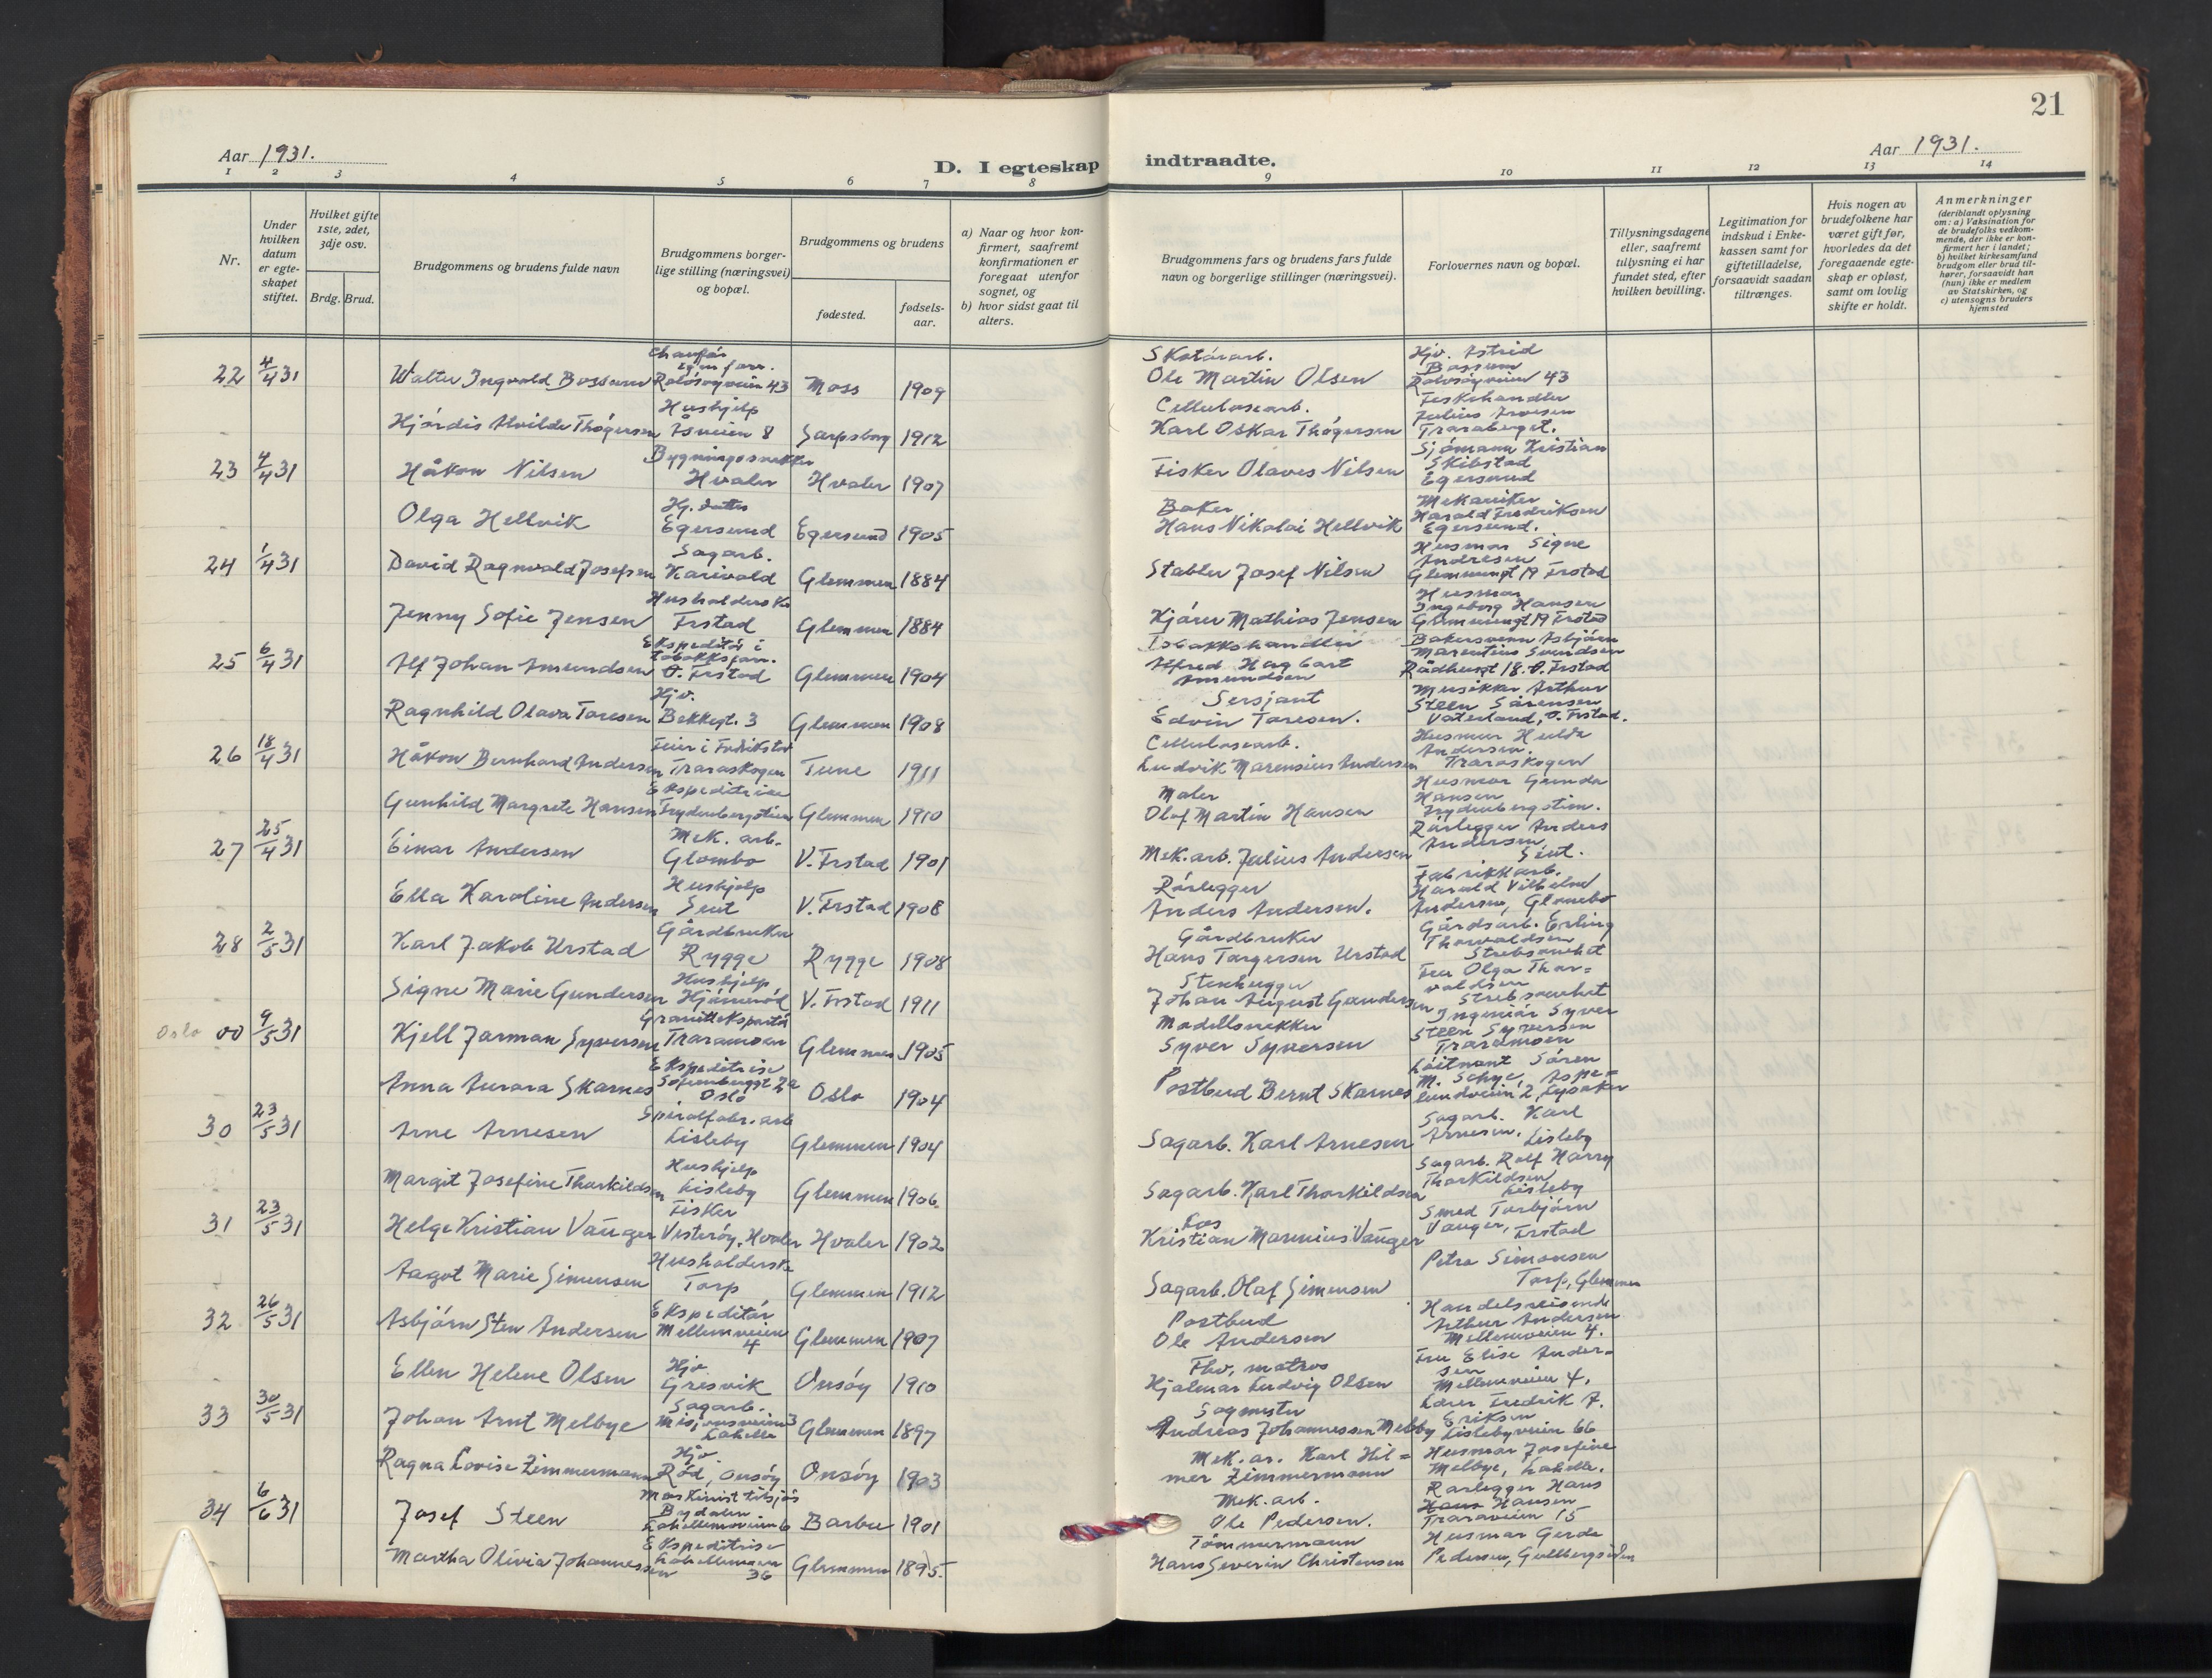 21
Aar 1931.
D. I egteskap indtraadte.
Aar 1931.
1 2 3 4 5 6 7 8 9 10 11 12 13 14
Nr.
Under hvilken datum er egteskapet stiftet.
Hvilket gifte 1ste, 2det, 3dje osv.
Brdg. Brud.
Brudgommens og brudens fulde navn
Brudgommens borgerlige stilling (næringsvei) og bopæl.
Brudgommens og brudens
fødested.
fødselsaar.
a) Naar og hvor konfirmert, saafremt konfirmationen er foregaat utenfor sognet, og
b) hvor sidst gaat til alters.
Brudgommens fars og brudens fars fulde navn og borgerlige stillinger (næringsvei).
Forlovernes navn og bopæl.
Tillysningsdagene eller, saafremt tillysning ei har fundet sted, efter hvilken bevilling.
Legitimation for indskud i Enkekassen samt for giftetilladelse, forsaavidt saadan tiltrænges.
Hvis nogen av brudefolkene har været gift før, hvorledes da det foregaaende egteskap er opløst, samt om lovlig skifte er holdt.
Anmerkninger
(deriblandt oplysning om: a) Vaksination for de brudefolks vedkommende, der ikke er konfirmert her i landet; b) hvilket kirkesamfund brudgom eller brud tilhører, forsaavidt han (hun) ikke er medlem av Statskirken, og c) utensogns bruders hjemsted
22 4/4 31 Walter Ingvald Bossum Rolvsøyveien 43 Moss 1909 Skotøiarb. Ole Martin Olsen Hjv. Astrid Bossum Rolvsøyveien 43
Hjørdis Alvilde Thøgersen Hushjelp Åsveien 8 Sarpsborg 1912 Cellulosearb. Karl Oskar Thøgersen Fiskehandler Julius Traraberget.
23 4/4 31 Håkon Nilsen Bygningssnekker Hvaler Hvaler 1907 Fisker Olaves Nilsen Sjømann Kristian Skibstad Egersund
Olga Hellvik Hj. datter Egersund Egersund 1905 Baker Hans Nikolai Hellvik Mekaniker Harald Fredriksen Egersund.
24 1/4 31 David Ragnvald Josefsen Sagarb. Karivold Glemmen 1884 Stabler Josef Nilsen Husmor Signe Andresen Glemmengt 19 Frstad
Jenny Sofie Jensen Husholderske Frstad Glemmen 1884 Kjører Mathias Jensen Husmor Ingeborg Hansen Glemmengt 19 Frstad
25 6/4 31 Alf Johan Amundsen Ekspeditør i tobakksforr. Ø. Frstad Glemmen 1904 Tobakkshandler Alfred Hagbart Amundsen Bakersvenn Asbjørn Marentius Svendsen Rådhusgt 18. Ø. Frstad
Ragnhild Olava Toresen Hjv. Bekkegt. 3 Glemmen 1908 Sersjant Edvin Toresen. Musikker Arthur Steen Sørensen Vaterland, Ø. Frstad.
26 18/4 31 Håkon Bernhard Andersen Feier i Fredrikstad Traraskogen Tune 1911 Cellulosearb. Ludvik Marensius Andersen Husmor Hulda Andersen. Traraskogen
Gunhild Margrete Hansen Ekspeditrise Frydenbergstien Glemmen 1910 Maler Olaf Martin Hansen Husmor Gunda Hansen Frydenbergstien.
27 25/4 31 Einar Andersen Mek. arb. Glombo V. Frstad 1901 Mek. arb. Julius Andersen Rørlegger Anders Andersen, Seut.
Ella Karoline Andersen Hushjelp Seut V. Frstad 1908 Rørlegger Anders Andersen. Fabrikkarb. Harald Vilhelm Andersen, Glombo
28 2/5 31 Karl Jakob Urstad Gårdbruker Rygge Rygge 1908 Gårdbruker Hans Torgersen Urstad Gårdsarb. Erling Thorvaldsen Strebsomhet
Signe Marie Gundersen Hushjelp V. Frstad 1911 Stenhugger Johan August Gundersen Fru Olga Thorvaldsen Strebsomhet
Oslo 00 9/5 31 Kjell Jarman Syversen Granitteksportør Traramoen Glemmen 1905 Modellsnekker Syver Syversen Ingeniør Syver Steen Syversen Traramoen
Anna Aurora Skarnes Ekspeditrise Sofienberggt 2a Oslo Oslo 1904 Postbud Bernt Skarnes Løitnant Søren M. Schye, Aspelundveien 2, Lysaker
30 23/5 31 Arne Arnesen Spiralfabr. arb Lisleby Glemmen 1904 Sagarb. Karl Arnesen Sagarb. Karl Arnesen. Lisleby
Margit Josefine Thorkildsen Hushjelp Lisleby Glemmen 1906 Sagarb. Karl Thorkildsen Sagarb. Rolf Harry Thorkildsen Lisleby
31 23/5 31 Helge Kristian Vauger Fisker Vesterøy, Hvaler Hvaler 1902 Los Kristian Marinius Vauger Smed Torbjørn Vauger, Frstad
Aagot Marie Simensen Husholderske Torp Glemmen 1912 Sagarb. Olaf Simensen Petra Simonsen Torp, Glemmen
32 26/5 31 Asbjørn Sten Andersen Ekspeditør Mellemveien 4 Glemmen 1907 Postbud Ole Andersen Handelsreisende Arthur Andersen Mellemveien 4.
Ellen Helene Olsen Hjv Gresvik Onsøy 1910 Fhv. matros Hjalmar Ludvig Olsen Fru Elise Andersen Mellemveien 4.
33 30/5 31 Johan Arnt Melbye Sagarb. Misjonsveien 3 Lahelle Glemmen 1897 Sagmester Andreas Johannessen Melby Lærer Fredrik F. Eriksen Lislebyveien 66
Ragna Lovise Zimmermann Hjv. Rød, Onsøy Onsøy 1903 Mek. ar. Karl Hilmer Zimmermann Husmor Josefine Melbye, Lahelle.
34 6/6 31 Josef Steen Maskinist tilsjøs Lahellemoveien 6 Barbu 1901 Mek. arb. Ole Pedersen. Rørlegger Hans Hansen Traraveien 15
Martha Olivia Johannessen Ekspeditrise 36 Glemmen 1895. Tømmermann Hans Severin Christensen Husmor Gerda Pedersen, Gullbergsiden